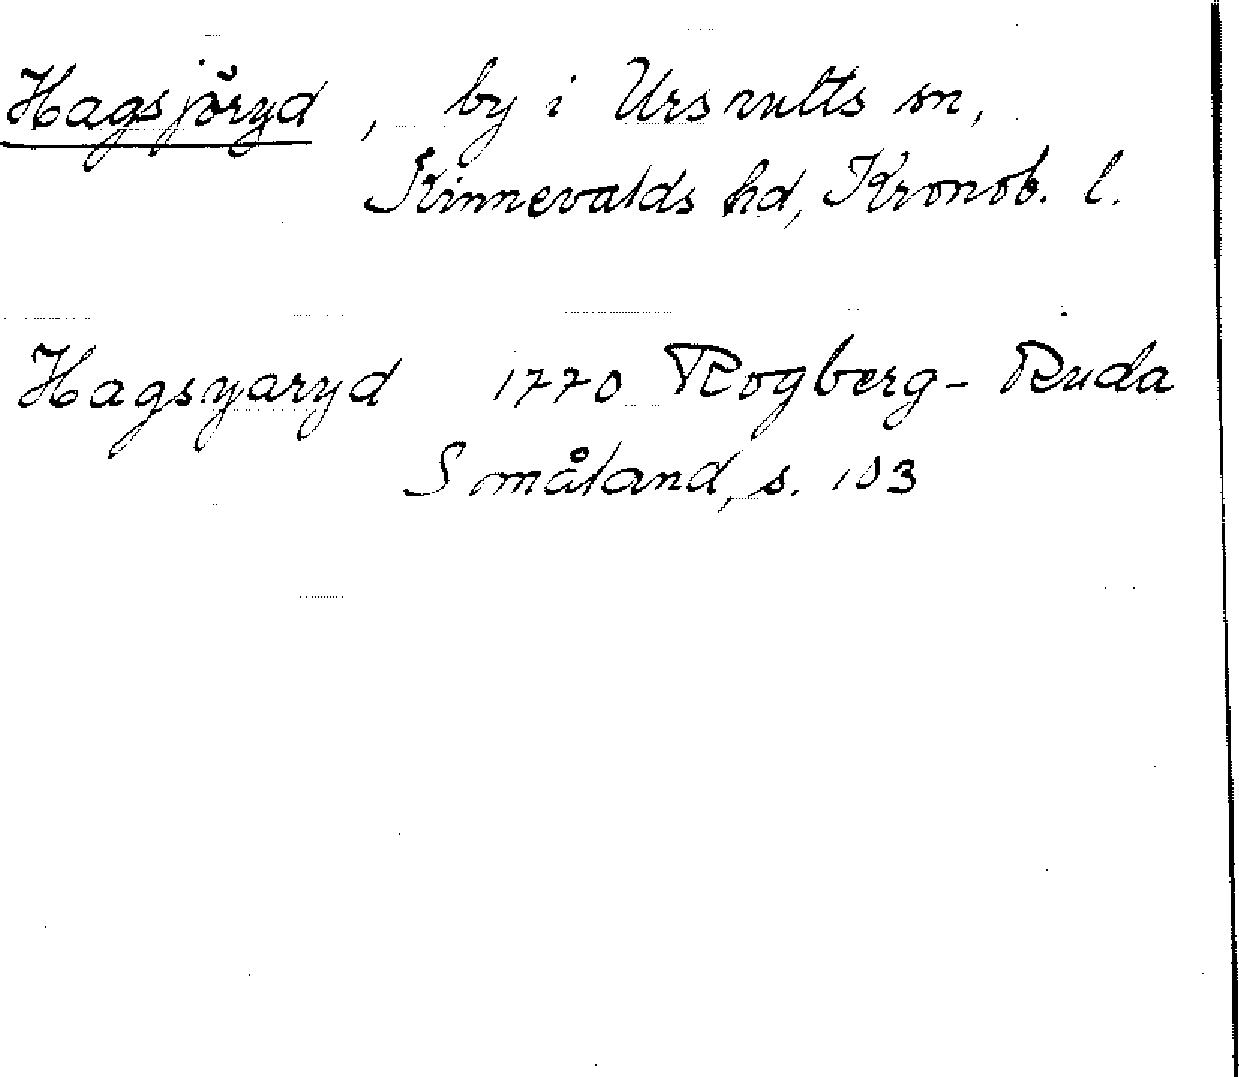 Hagsjöryd, by i Urshults sn,
Kinnevalds hd, Kronob. l.
Hagsyaryd 1770 Rogberg-Ruda
Småland, s. 103